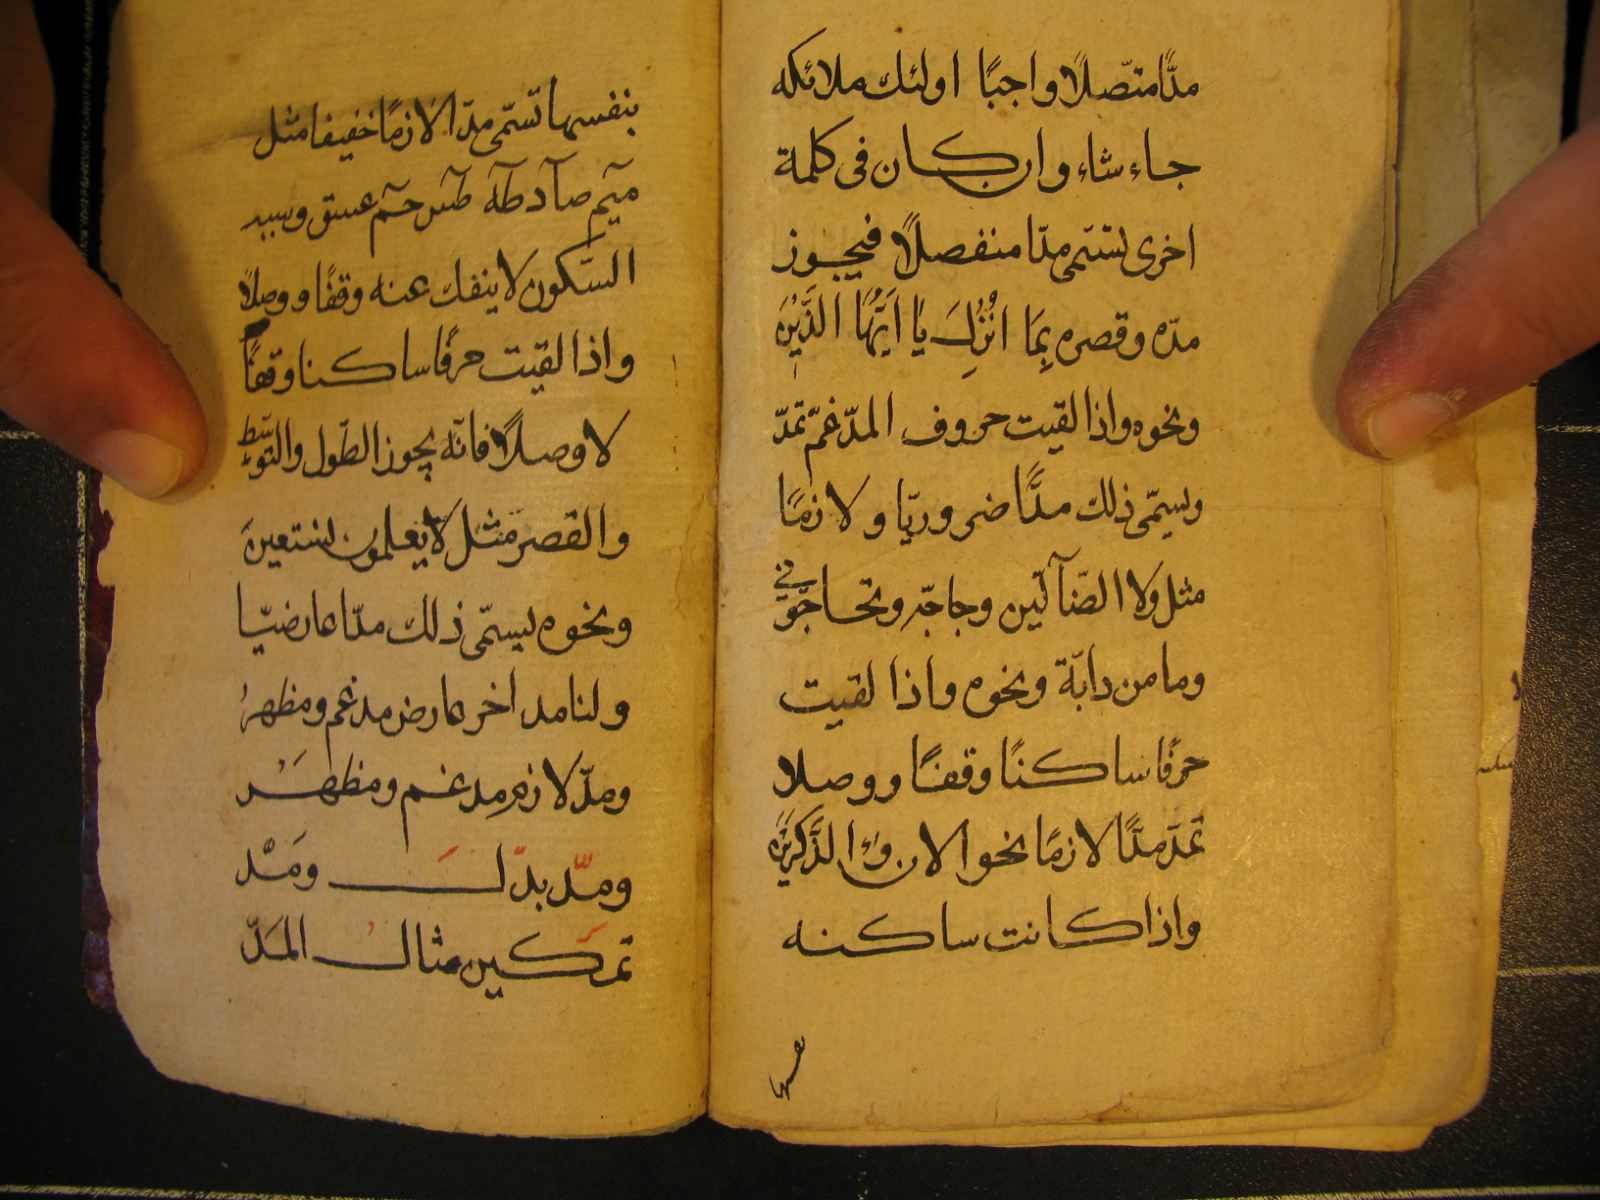 مدًّا متصّلًا واجبًا اولئك ملائكه
جاء شاء وان كان فى كلمة
اخرى تسّمى مدّا منفصلًا فيجوز
مدّه وقصره بِمَا انُزِلَ يَا اَيُّهَا الَّذَيْنَ
ونحوه واذا لقيت حروف المدّغم تمدّ
ويسمّى ذلك مدًّا ضروريّا و لازمًا
مثل ولا الضّآلّين وحاجّه وتحاجّونى
وما من دابّة ونحوه واذا لقيت
حرفًا ساكنًا وقفًا ووصلا
تمدّ مدًّا لازمًا نحو الان و ءالذَّكريْن
واذا كانت ساكنه
بنفسها
بنفسها تسّمى مدّا لازمًا خفيفا مثل
ميٓم صآد طٰهٓ طٓسٓ حٓمٓ عسق وسبب
السّكون لا ينفك عنه وقفًا ووصلًا
واذا لقيت حرفًا ساكنا وقفًا
لا وصلًا فانّه يجوز الطّول والتّوسّط
والقصر مثل لا يعلمون نستعين
ونحوه يسمّى ذلك مدّا عارضيّا
ولنا مد اخر عارض مدغم ومظهر
ومدّ لازم مدغم ومظهَر
ومدّ بدّلَ ومَدْ
تمكين مثال المَدّ